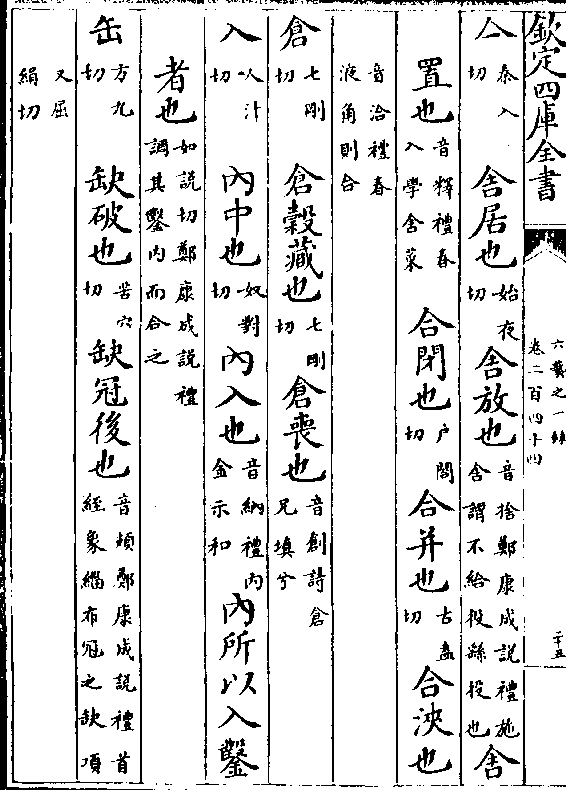 欽定四庫全書
卷二百四十四
二十五
亼秦入切 舍居也始夜切 舍放也音捨鄭康成說禮施舍謂不給役繇役也 舍
置也音釋禮春入學舍菜 合閉也户閤切 合并也古盍切 合浹也
音洽禮春液角則合
倉七剛切 倉穀藏也七剛切 倉喪也音創詩倉兄填兮
入人汁切 內中也奴對切 內入也音納禮內金示和 內所以入鑿
者也如說切鄭康成說禮調其鑿內而合之
缶方九切 缺破也苦穴切 缺冠後也音頍鄭康成說禮首經象緇布冠之缺項
又屈絹切